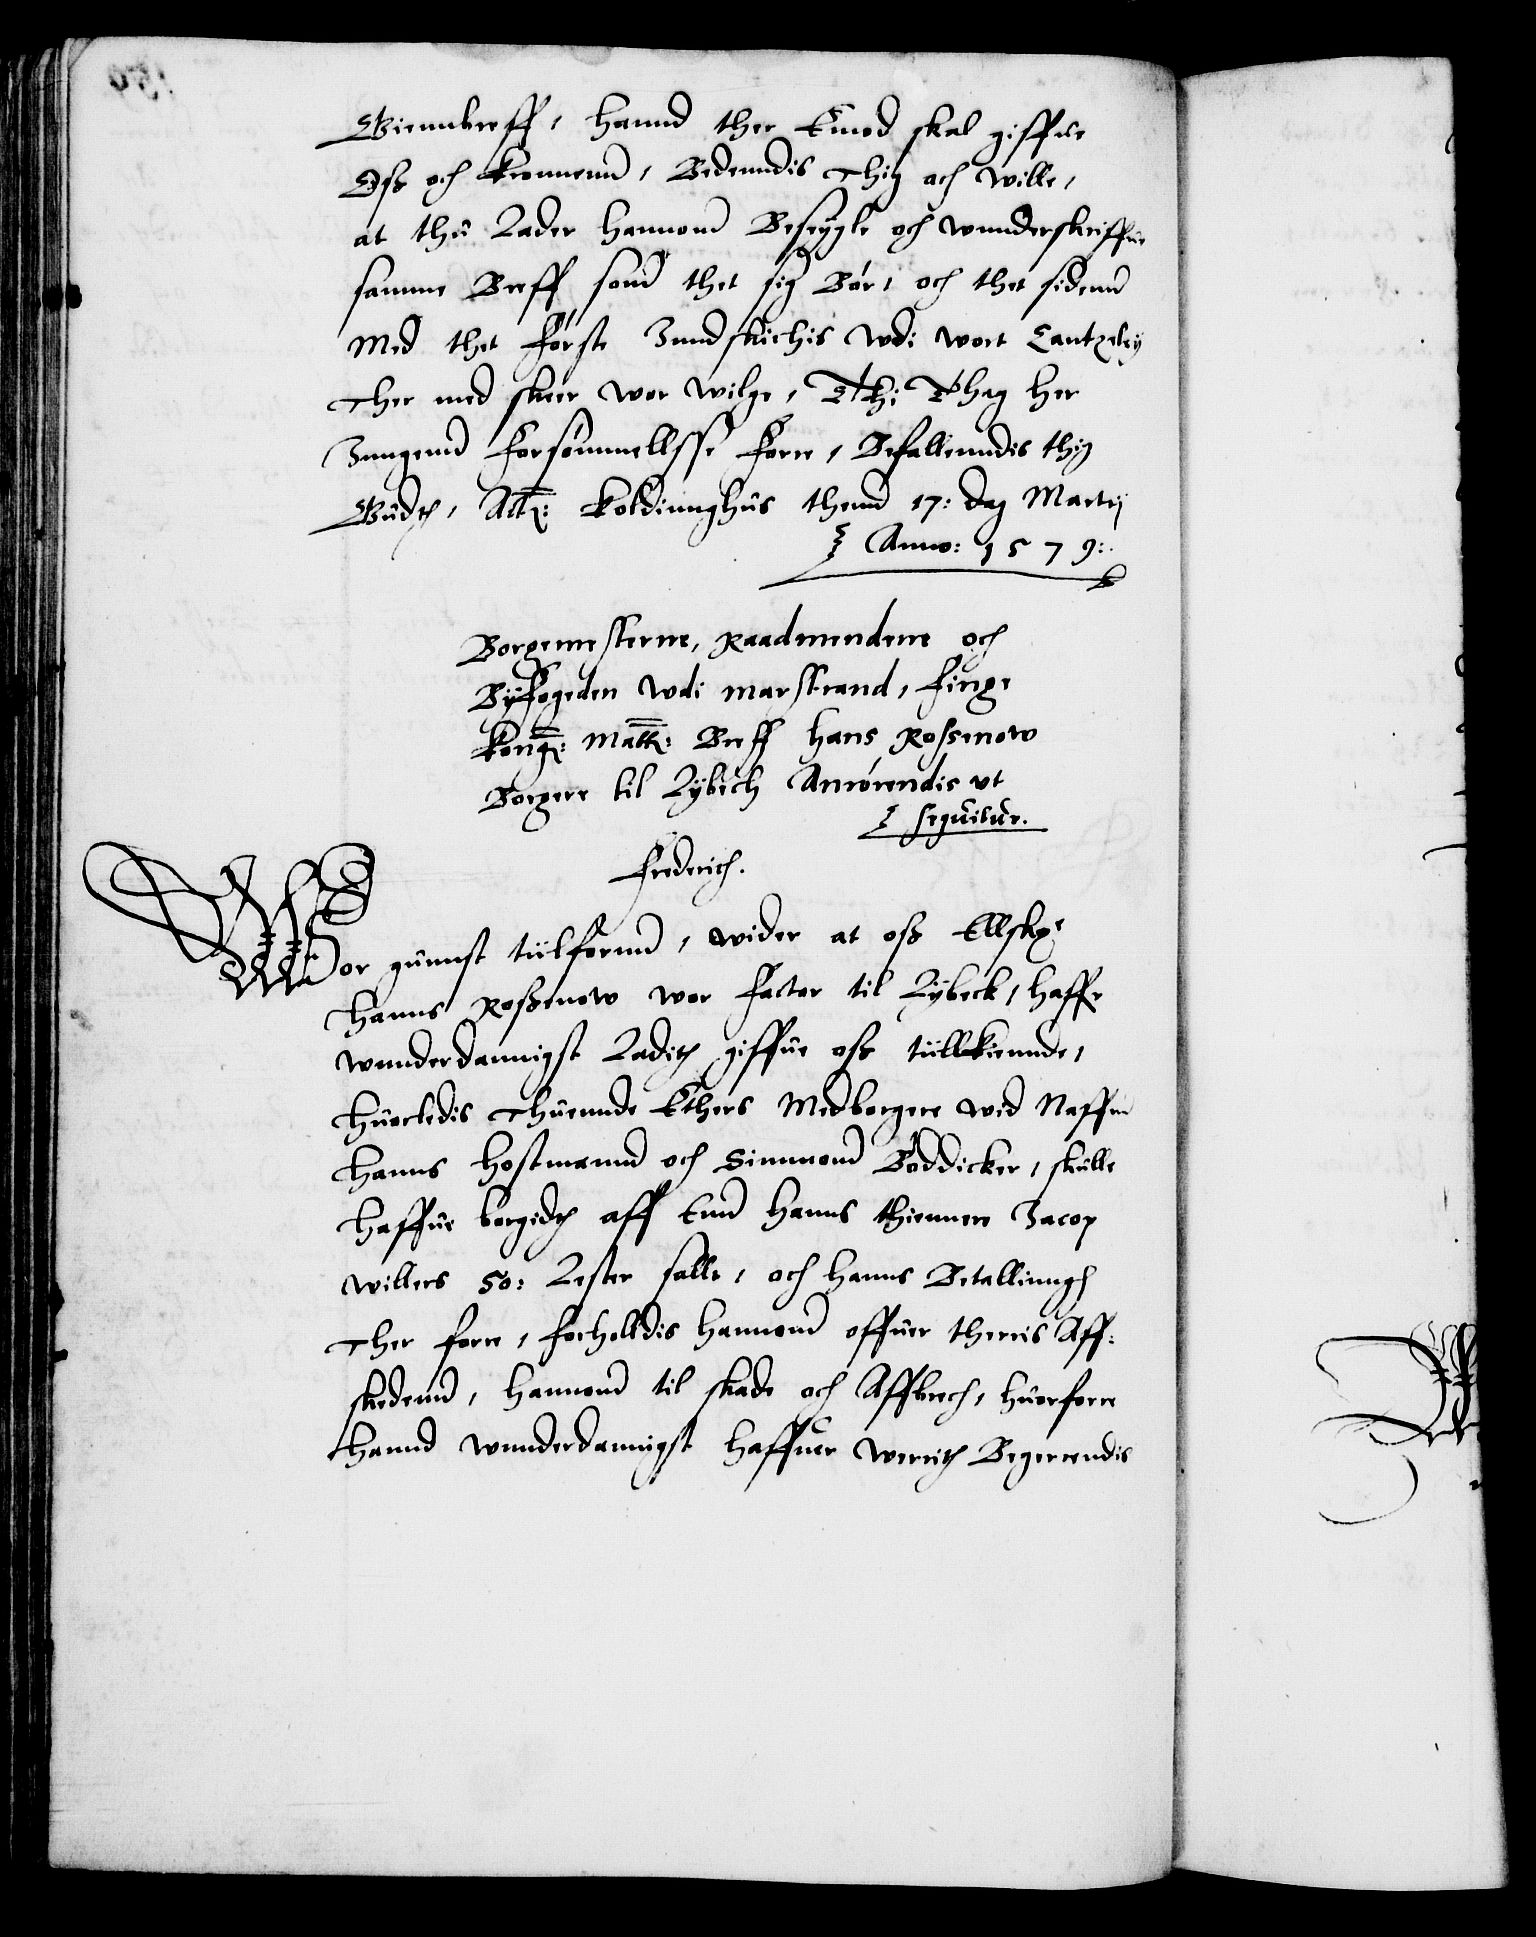 Gienbreff, hannd ther Emod skal giffue
Oss och Kronnenn, Bedenndis Thig och wille,
at thu Lader hannom Beseygle och wnnderskriffue
samme Breff som thet sig Bør, och thet sidenn
Med thet Første Inndskickis wdi wort Cantzeley
Ther med skeer wor wilge, Thi Thag her
Inngenn Forsømmellsse Fore, Befallenndis thig
Gudt, Actt: Koldinnghus thenn 17: dag Martij
Anno: 1579:
Borgemesterne, Raadmendene och
Byfogeden wdi Marstrand, Finge
Kong: Matt: Breff Hans Rossenow
Borgere til Lybech Anrørendis vt
sequitur.
Frederich.
Wor gunnst tilfornn, wider at oss Ellske
Hanns Rossenow wor Factor til Lybeck, haffr
wnnderdannigst Ladit giffue oss tillkiennde,
huorledis Thuennde Ethers Medborgere wed Naffnn
Hanns Hostmannd och Simmonn Bøddicker, skulle
haffue borgidt aff Enn Hanns thiennere Jacop
Willers 50: Lester sallt, och hanns Betallinngh
Ther fore, forholldis hannom offuer therris Aff:
skedenn, hannom til skade och Affbrech, huorfore
hannd wnnderdannigst haffuer werrit Begerrendis